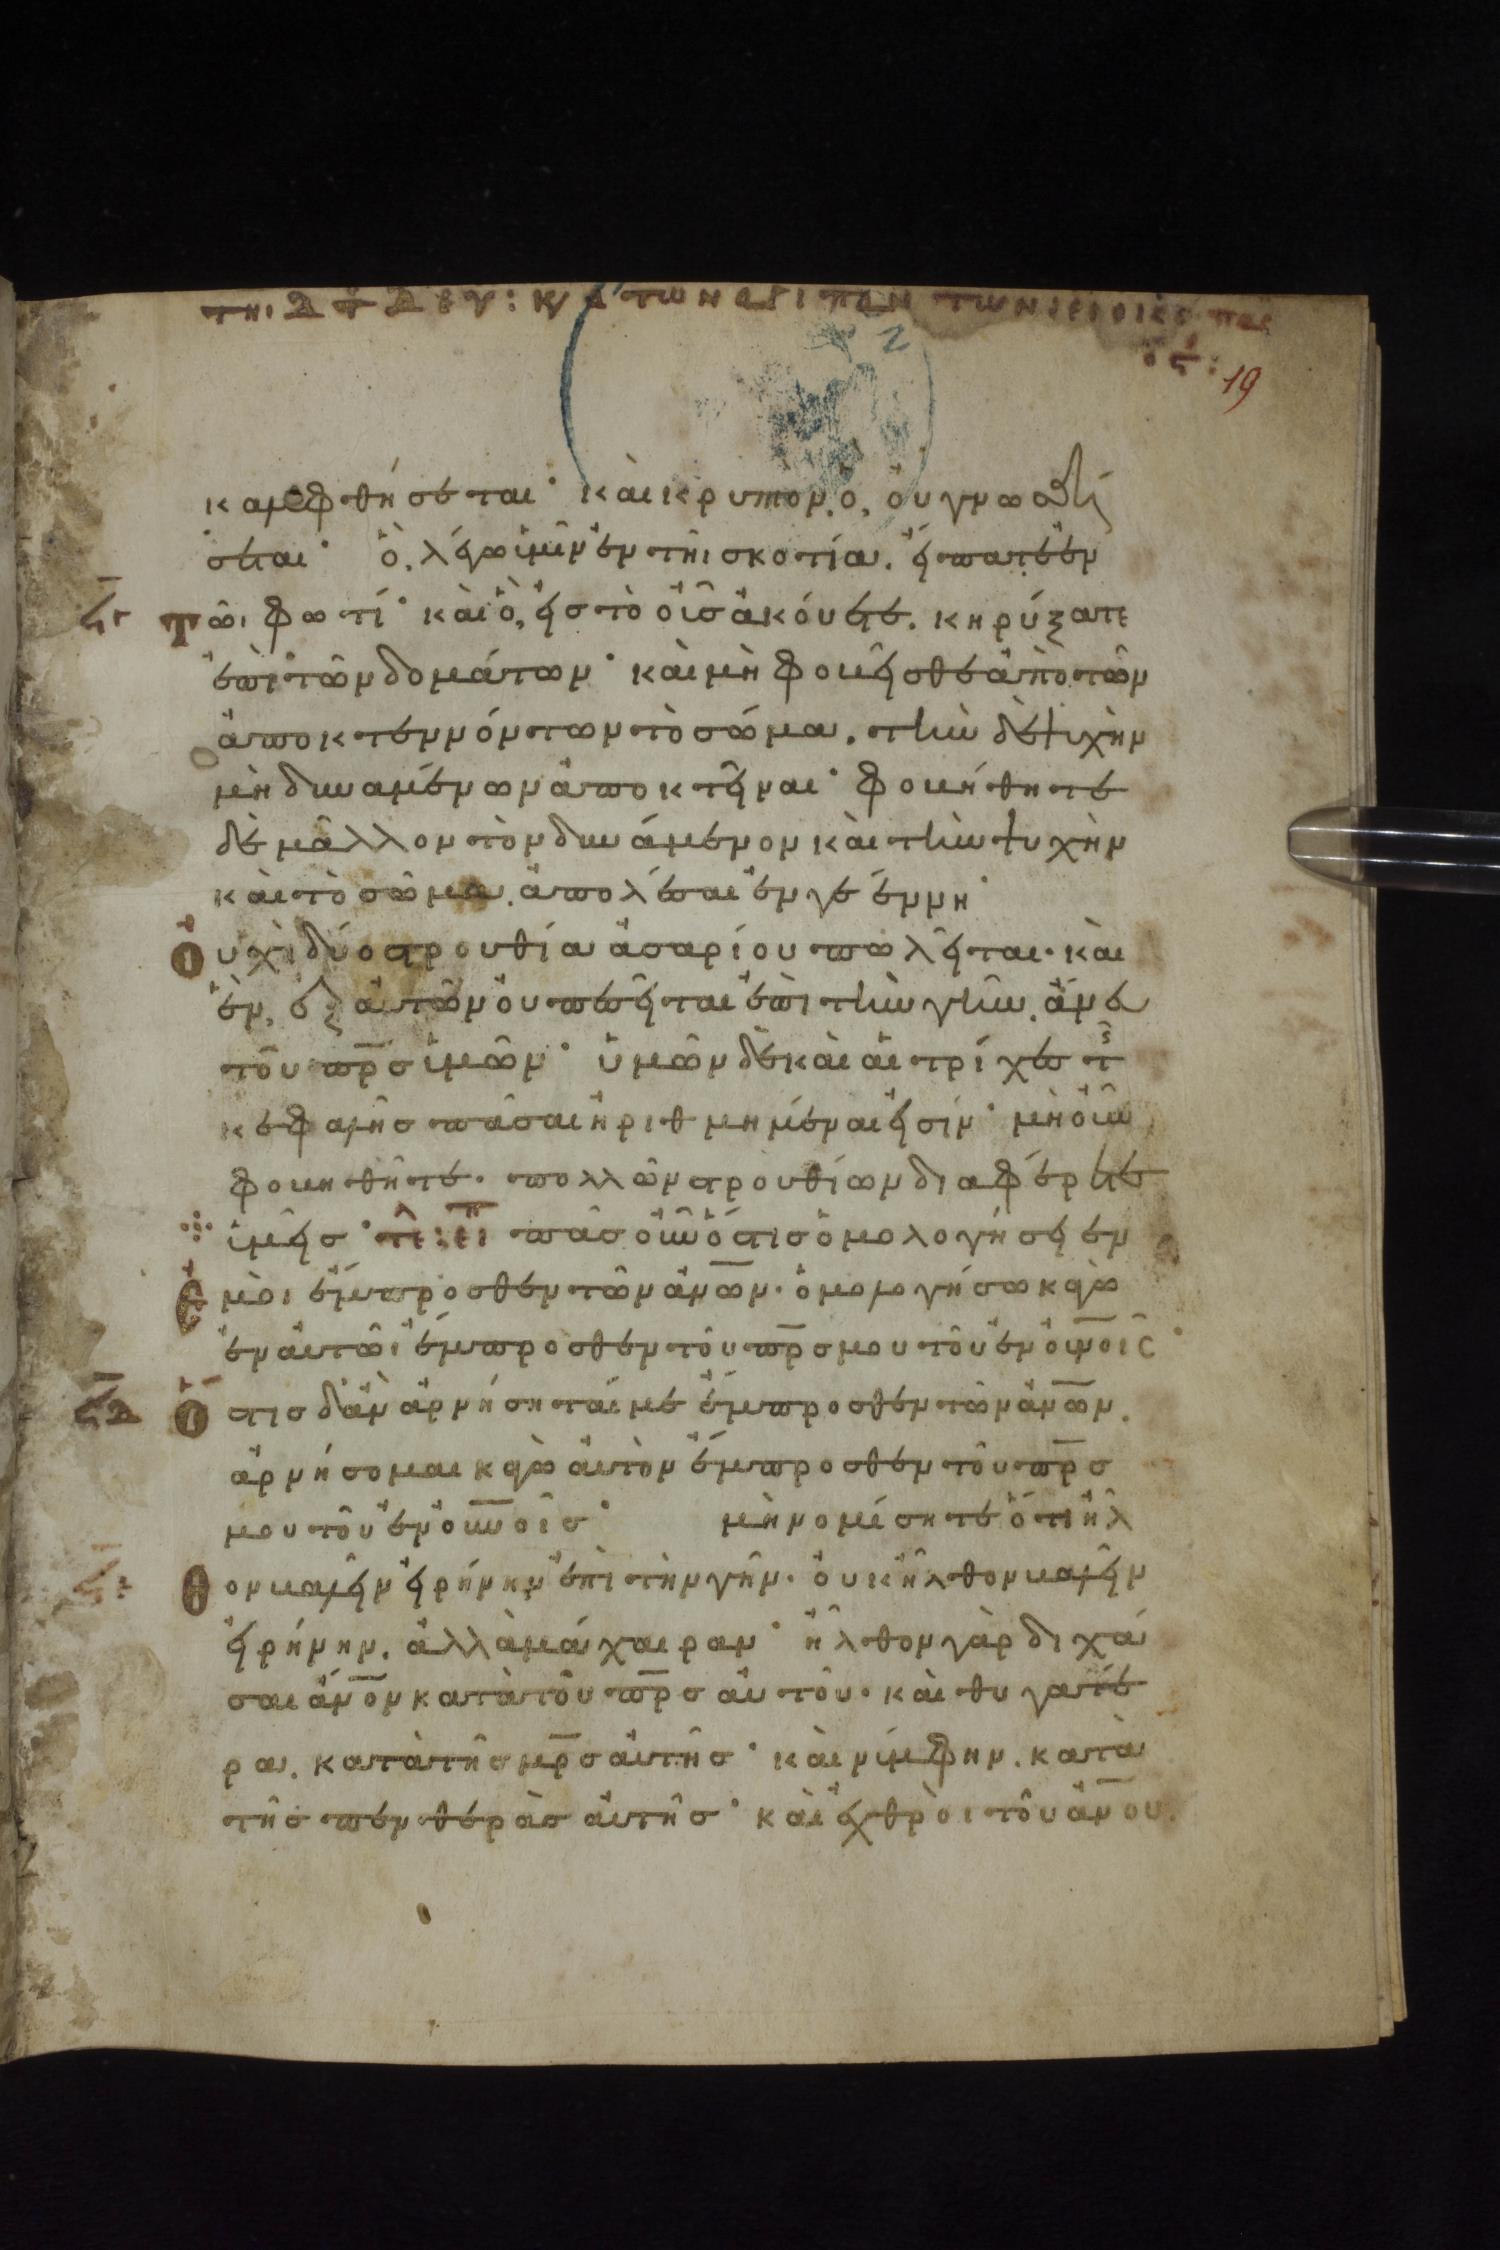 19
καλυφθήσεται· καὶ κρυπτὸν, ὃ, οὐ γνωσθή
σεται· ὃ, λέγω ὑμῖν ἐν τῆι σκοτία. εἴπατε ἐν
Τῶι φωτί· καὶ ὃ, εἰς τὸ οὖς ἀκούετε. κηρύξατε
ἐπὶ τῶν δομάτων· καὶ μὴ φοβεῖσθε ἀπὸ τῶν
ἀποκτεννόντων τὸ σώμα. τὴν δὲ ψυχὴν
μὴ δυναμένων ἀποκτεῖναι· φοβήθητε
δὲ μᾶλλον τὸν δυνάμενον καὶ τὴν ψυχὴν
καὶ τὸ σῶμα. ἀπολέσαι ἐν γεέννη·
Οὐχὶ δύο στρουθία ἀσαρίου πωλεῖται. καὶ
ἓν, ἐξ αὐτῶν οὐ πεσεῖται ἐπὶ τὴν γῆν. ἄνευ
τοῦ π̅ρ̅ς ὑμῶν· ὑμῶν δὲ καὶ αἱ τρίχες τῆς
κεφαλῆς πᾶσαι ἠριθμημέναι εἰσίν· μὴ οὖν
φοβηθῆτε. πολλῶν στρουθίων διαφέρετε
ὑμεῖς· τε: επι πᾶς οὖν ὅστις ὁμολογήσει ἐν
Ἐμοὶ ἔμπροσθεν τῶν ἀν̅ω̅ν. ὁμολογήσω καγὼ
ἐν αὐτῶι ἔμπροσθεν τοῦ π̅ρ̅ς μου τοῦ ἐν ο̅υ̅νοῖς·
Ὅστις δ' ἂν ἀρνήσηταί με ἔμπροσθεν τῶν ἀν̅ω̅ν.
ἀρνήσομαι καγὼ αὐτὸν ἔμπροσθεν τοῦ π̅ρ̅ς
μου τοῦ ἐν ο̅υ̅νοῖς· μὴ νομίσητε ὅτι ἦλ
Θον βαλεῖν εἰρήνην ἐπὶ τὴν γῆν. οὐκ ἦλθον βαλεῖν
εἰρήνην. ἀλλὰ μάχαιραν· ἦλθον γὰρ διχά
σαι ἄν̅ο̅ν κατὰ τοῦ π̅ρ̅ς αὐτοῦ. καὶ θυγατέ
ρα. κατὰ τῆς μ̅ρ̅ς αὐτῆς· καὶ νύμφην. κατὰ
τῆς πενθερὰς αὐτῆς· καὶ ἐχθρὸι τοῦ ἀν̅ου.